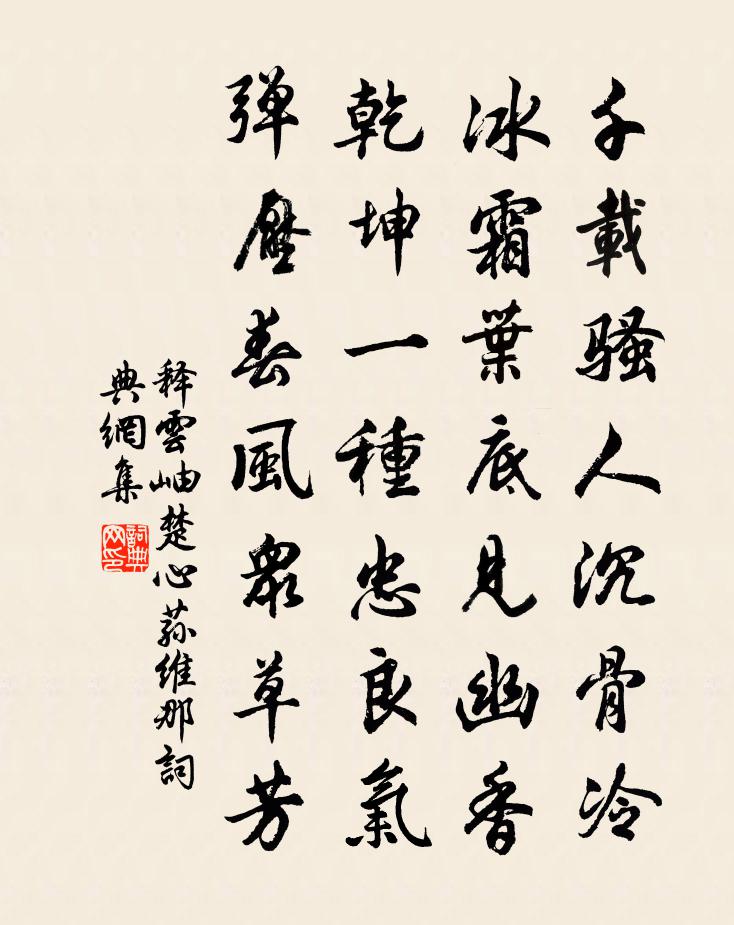 千載騷人沉骨冷
冰霜葉底見幽香
乾坤一種忠良氣
弹壓春風衆草芳
释雲岫楚心荪維那詞
典網集
詞典
网印